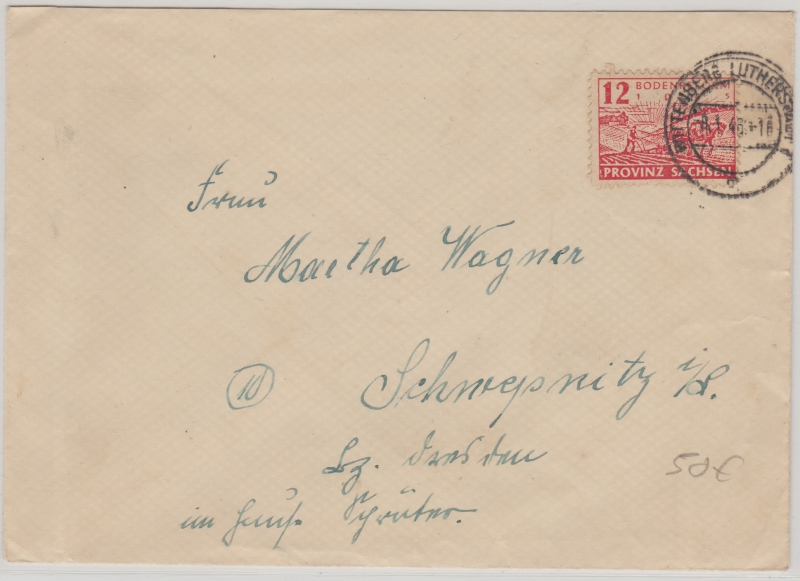 12 BODEN
PROVINZ SACHSEN
WITTENBERG LUTHERSTADT
Frau
Martha Wagner
10 Schwepnitz i/S.
Bz. Dresden
im Hause Schröter.
50€